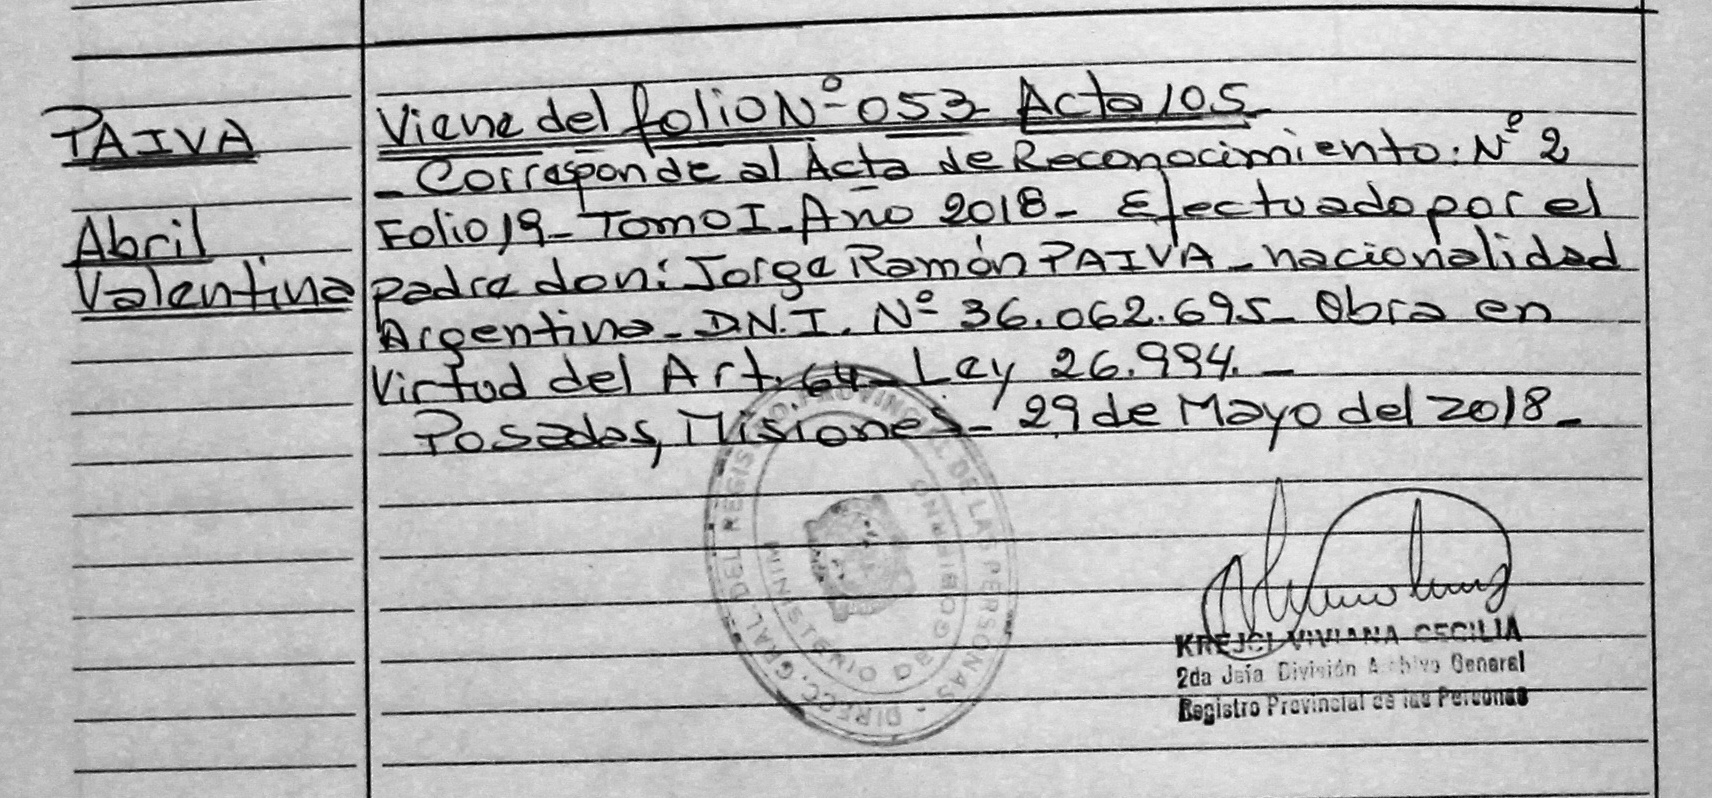 PAIVA
Abril
Valentina
Viene del folio Nº 053 Acta 105
- Corresponde al Acta de Reconocimiento: Nº 2
Folio 19 - Tomo I - Año 2018 - Efectuado por el
padre don: Jorge Ramón PAIVA - nacionalidad
Argentina - D.N.I. Nº 36.062.695 - Obra en
Virtud del Art. 64 - Ley 26.994. -
Posadas, Misiones - 29 de Mayo del 2018 -
DIRECC. GRAL. DEL REGISTRO PROVINCIAL DE LAS PERSONAS -
MINISTERIO DE GOBIERNO
KREJCI VIVIANA CECILIA
2da Jefa División Archivo General
Registro Provincial de las Personas